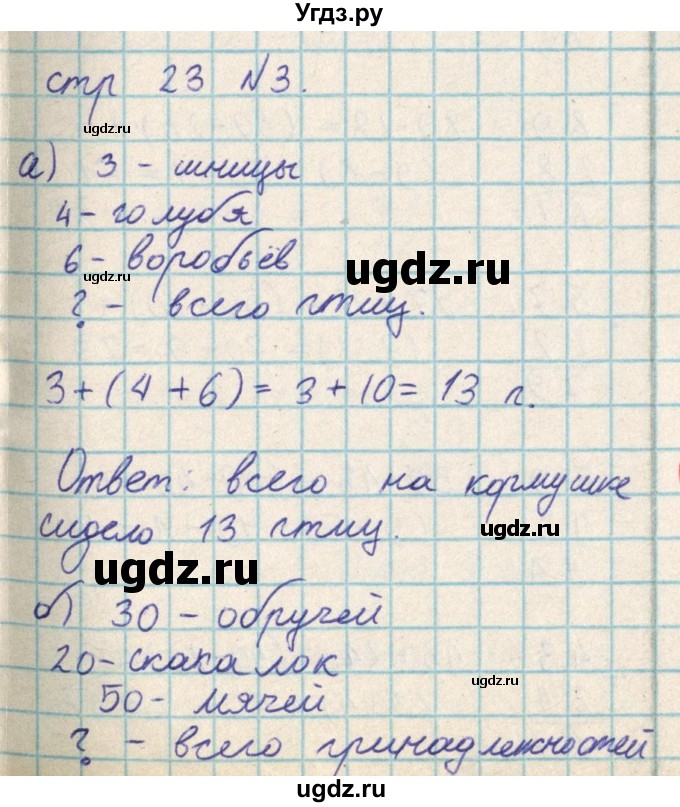 Угдз.ру
стр 23 №3.
ugdz.ru
а) 3 - синицы
4 - голубя
6 - воробьёв
ugdz.ru
ugdz.ru
? - всего птиц.
3 + (4 + 6) = 3 + 10 = 13 п.
Ответ: всего на кормушке
сидело 13 птиц.
ugdz.ru
ugdz.ru
б) 30 - обручей
20 - скакалок
ugdz.ru
50 - мячей
? - всего принадлежностей
ugdz.ru